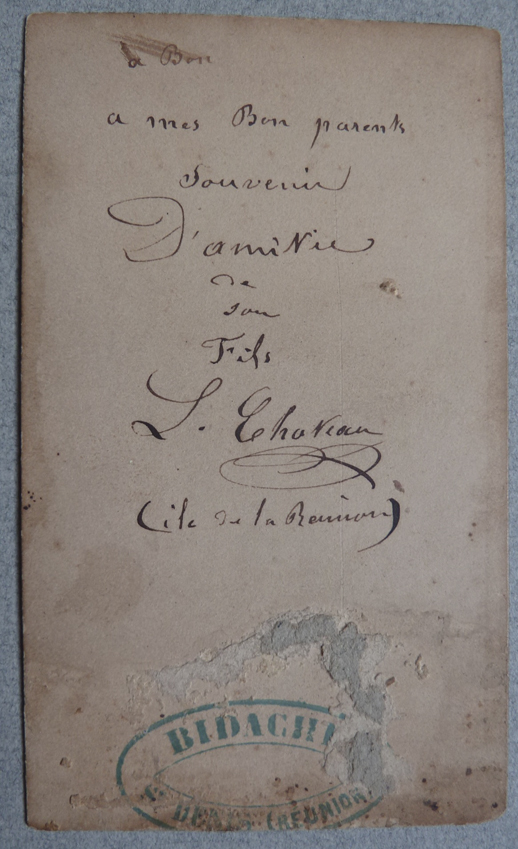 a Bon
a mes Bon parents
Souvenir
D'amitié
de
son
Fils
L. Choteau
(ile de la Reunion)
BIDACHE
ST DENIS (RÉUNION)